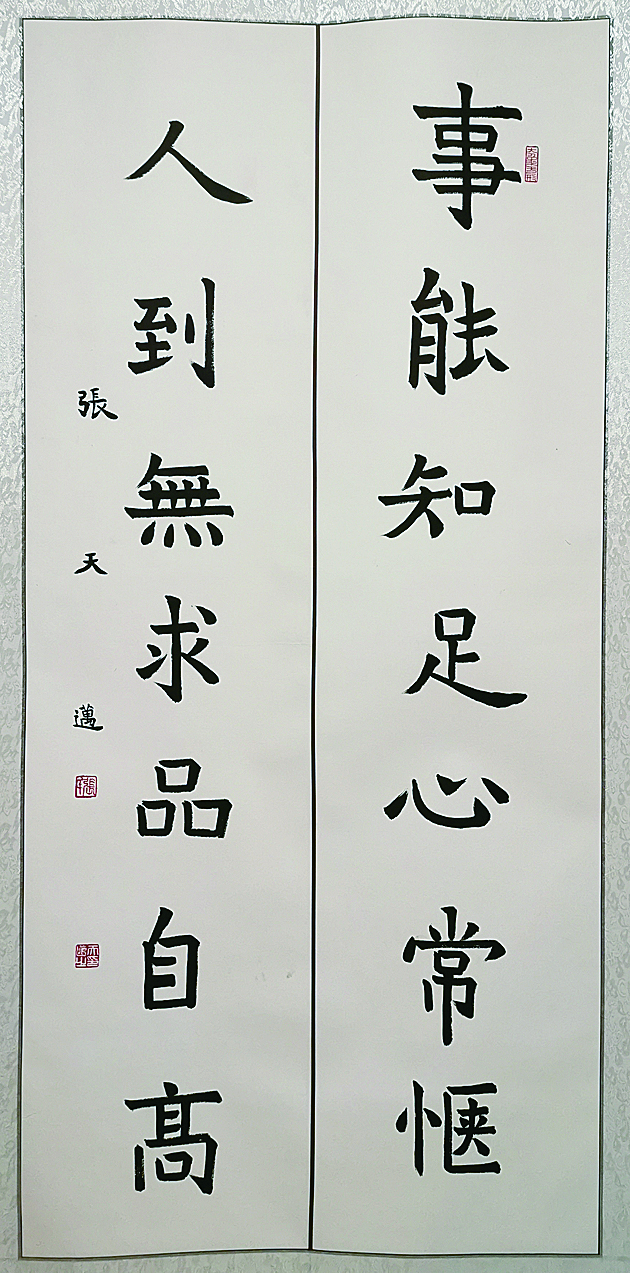 事能知足心常惬
人到無求品自高
張天邁